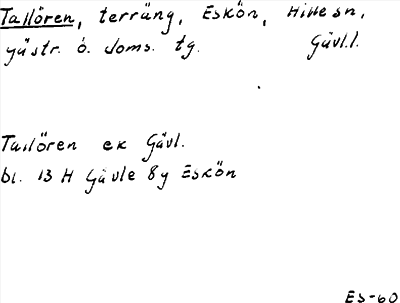 Tallören, terräng, Eskön, Hille sn,
Gästr. ö. doms. tg. Gävl.l.
Tallören ek Gävl.
bl. 13 H Gävle 8y Eskön
ES-60